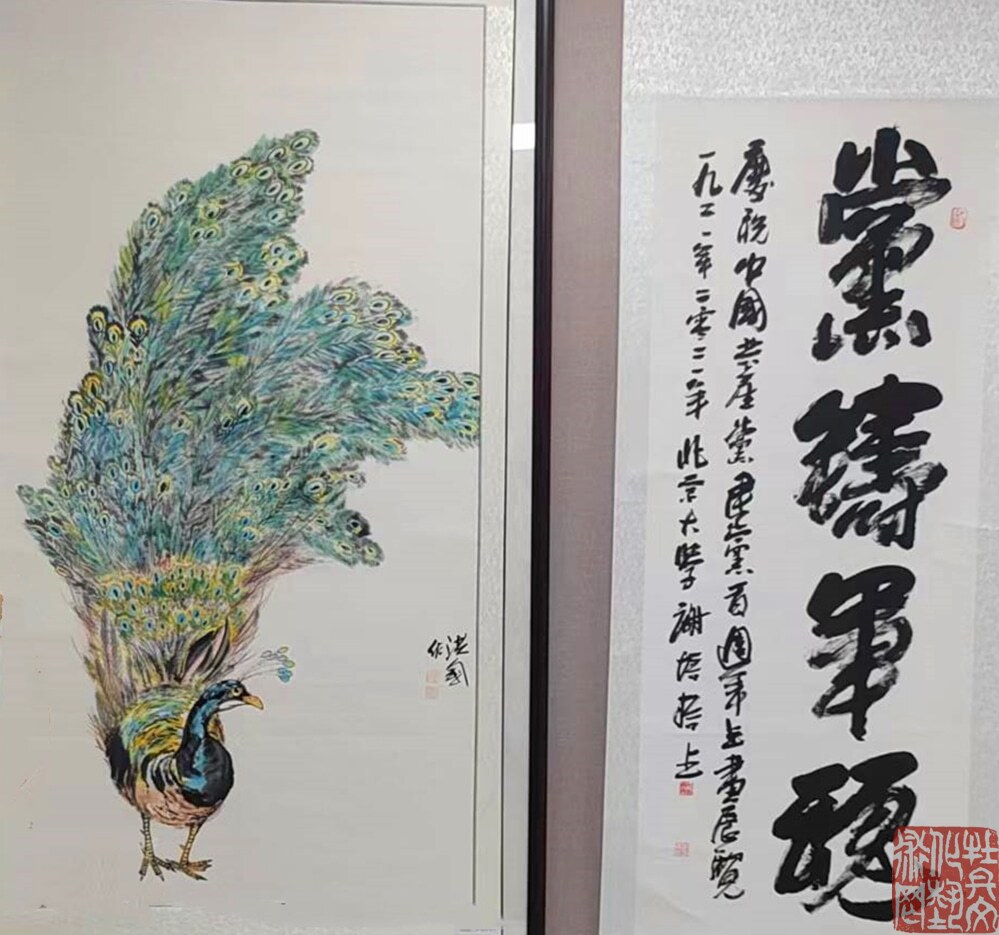 黨鑄軍魂
慶祝中國共產黨建黨百周年书畫展覽
一九二一年二零二一年北京大學謝培书
作